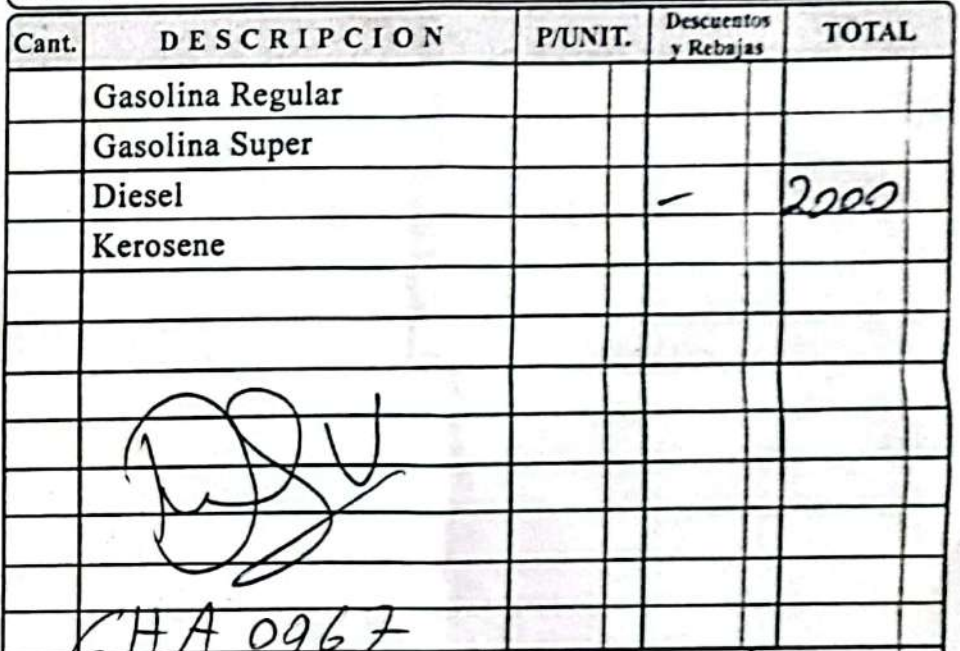 Cant. DESCRIPCION P/UNIT. Descuentos y Rebajas TOTAL
Gasolina Regular
Gasolina Super
Diesel - 2000
Kerosene
CHA 0967